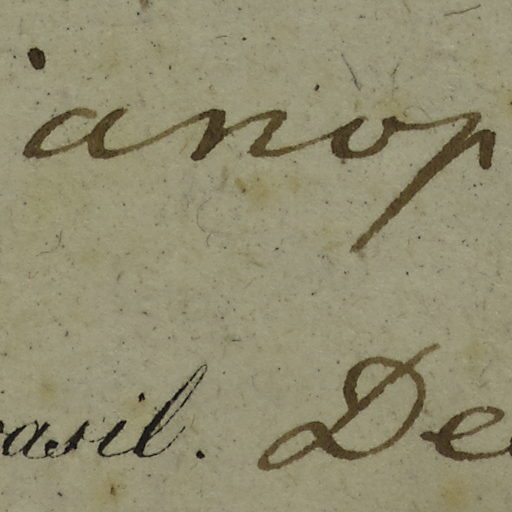 ianop
rasil. De